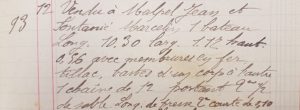 93 12 Vendu à Malpel Jean et
Fontanié Marcelin 1 bateau
long. 10,30 larg. 1.72 haut.
0,56 avec membrures en fer
tillac, barres d'un corps à l'autre
1 chaine de 12 portant
de sable long. de